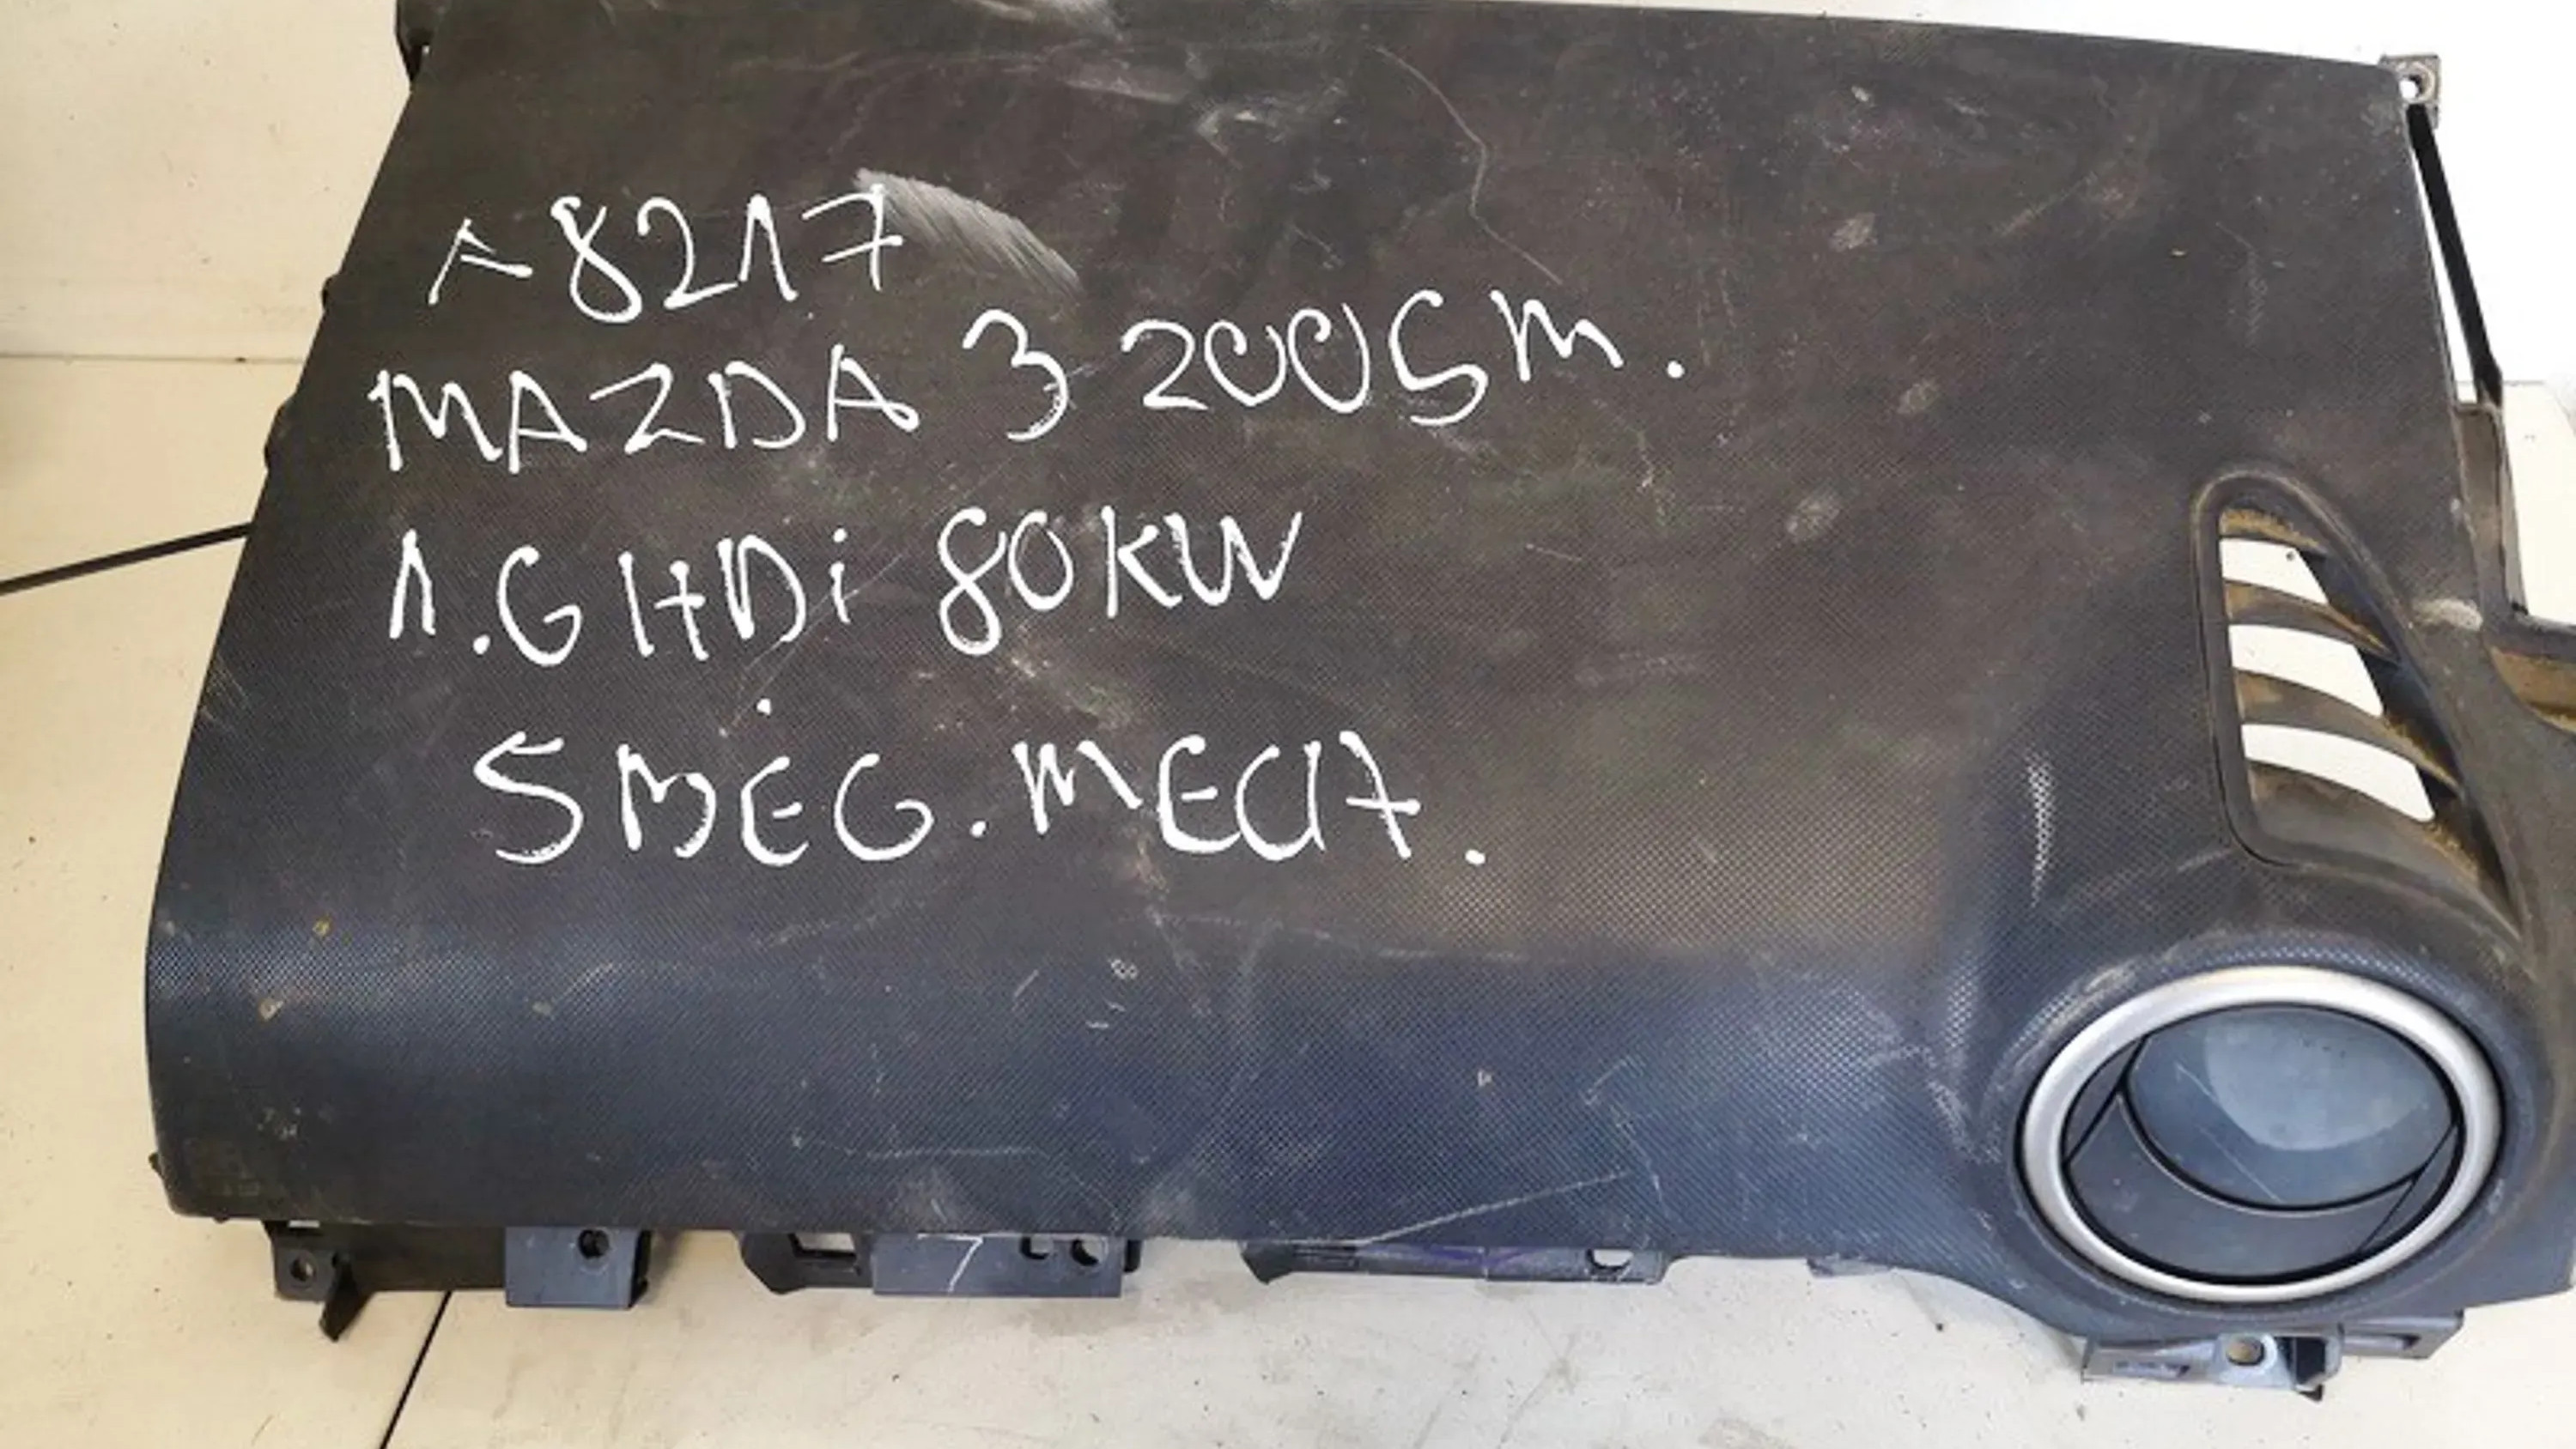 A8217
MAZDA 3 2005m.
1.6 HDi 80KW
5 BĖG. MECH.